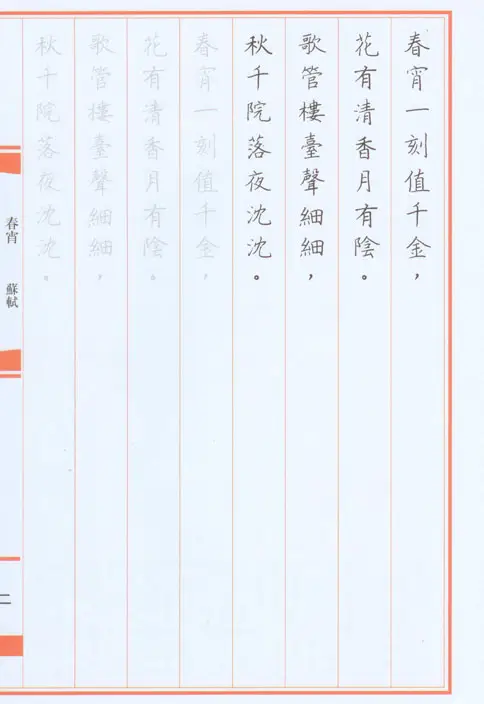 春宵一刻值千金，
花有清香月有陰。
歌管樓臺聲細細，
秋千院落夜沈沈。
春宵一刻值千金，
花有清香月有陰。
歌管樓臺聲細細，
秋千院落夜沈沈。
春宵 蘇軾
二